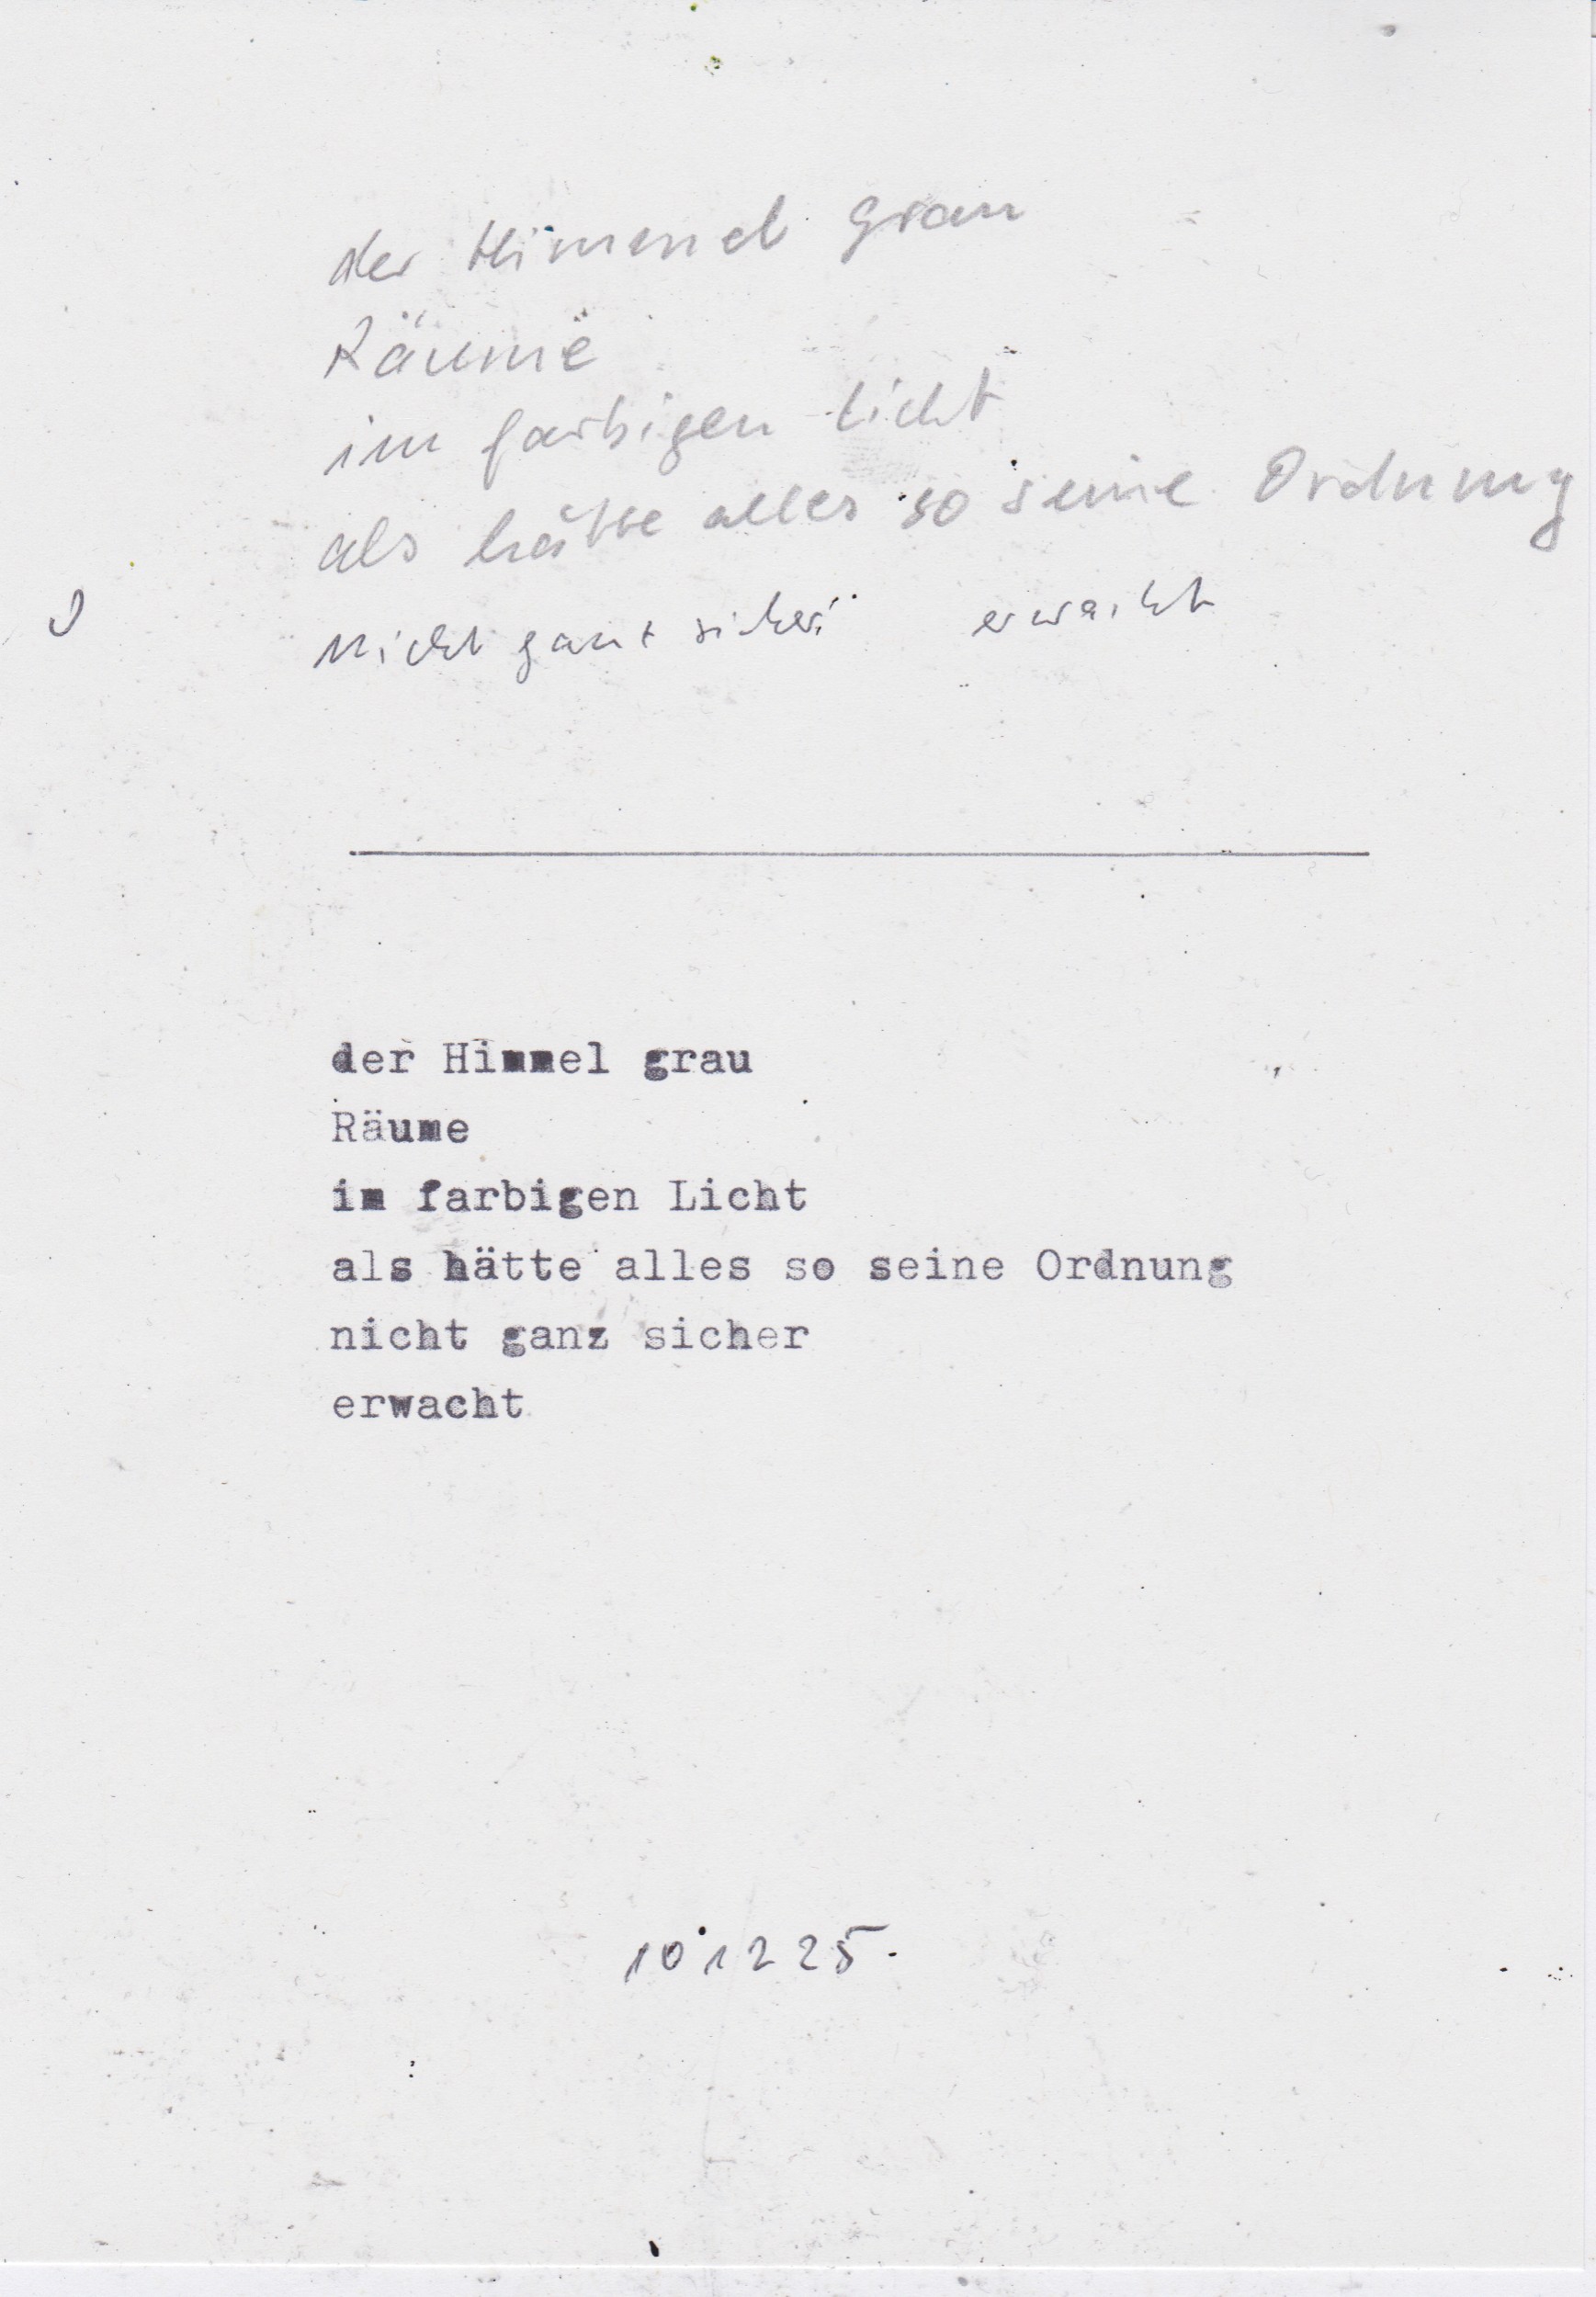 der Himmel grau
Räume
im farbigen Licht
als hätte alles so seine Ordnung
nicht ganz sicher erwacht
der Himmel grau
Räume
im farbigen Licht
als hätte alles so seine Ordnung
nicht ganz sicher
erwacht
10 12 25.